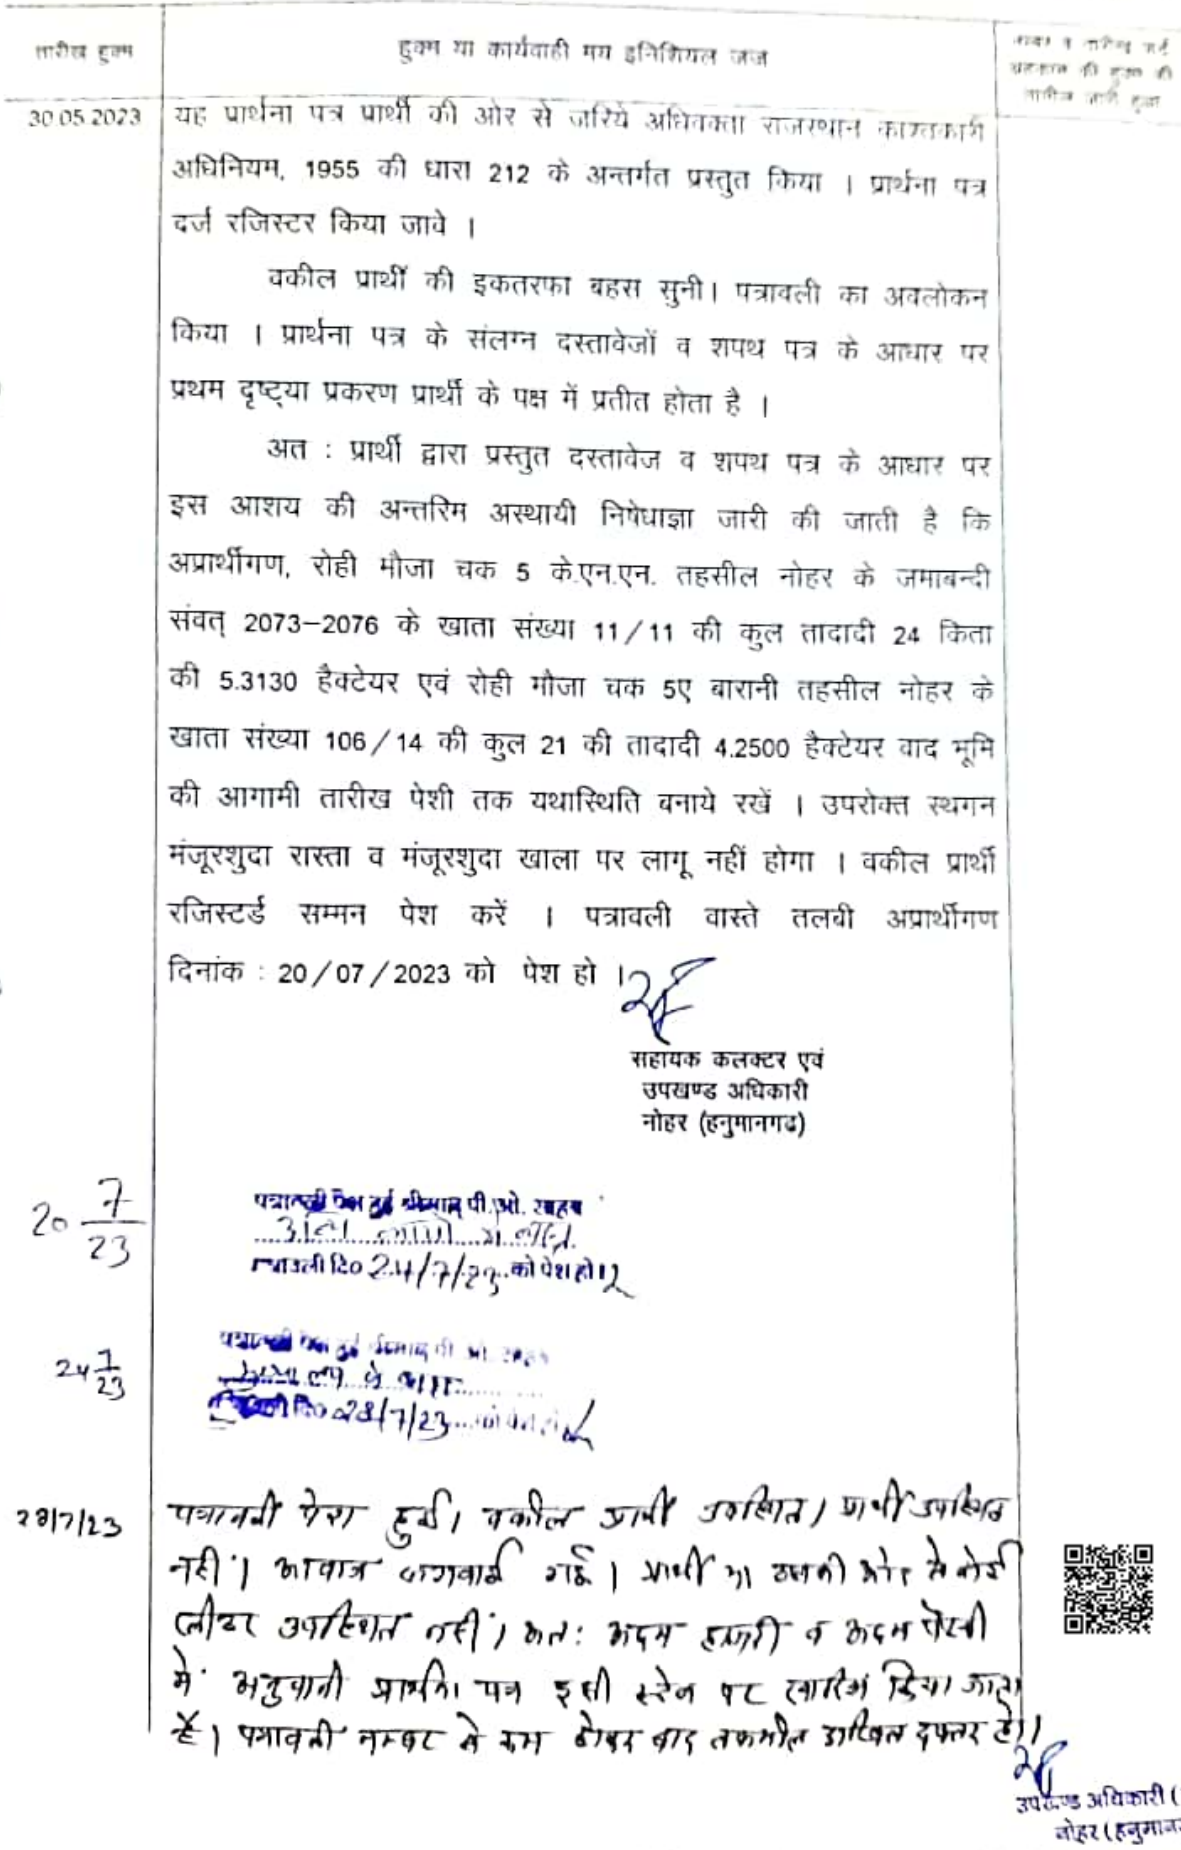 तारीख हुक्म
हुक्म या कार्यवाही मय इनिशियल जज
30.05.2023
यह प्रार्थना पत्र प्रार्थी की ओर से जरिये अधिवक्ता राजस्थान काश्तकारी
अधिनियम, 1955 की धारा 212 के अन्तर्गत प्रस्तुत किया । प्रार्थना पत्र
दर्ज रजिस्टर किया जावे ।
वकील प्रार्थी की इकतरफा बहस सुनी। पत्रावली का अवलोकन
किया । प्रार्थना पत्र के संलग्न दस्तावेजों व शपथ पत्र के आधार पर
प्रथम दृष्ट्या प्रकरण प्रार्थी के पक्ष में प्रतीत होता है ।
अत : प्रार्थी द्वारा प्रस्तुत दस्तावेज व शपथ पत्र के आधार पर
इस आशय की अन्तरिम अस्थायी निषेधाज्ञा जारी की जाती है कि
अप्रार्थीगण, रोही मौजा चक 5 के.एन.एन. तहसील नोहर के जमाबन्दी
संवत् 2073–2076 के खाता संख्या 11/11 की कुल तादादी 24 किता
की 5.3130 हैक्टेयर एवं रोही मौजा चक 5ए बारानी तहसील नोहर के
खाता संख्या 106/14 की कुल 21 की तादादी 4.2500 हैक्टेयर वाद भूमि
की आगामी तारीख पेशी तक यथास्थिति बनाये रखें । उपरोक्त स्थगन
मंजूरशुदा रास्ता व मंजूरशुदा खाला पर लागू नहीं होगा । वकील प्रार्थी
रजिस्टर्ड सम्मन पेश करें । पत्रावली वास्ते तलबी अप्रार्थीगण
दिनांक : 20/07/2023 को पेश हो ।
सहायक कलक्टर एवं
उपखण्ड अधिकारी
नोहर (हनुमानगढ)
20 7/23
पत्रावली पेश हुई श्रीमान् पी.ओ. साहब
दि० 24/7/23 को पेश हो।
24 7/23
पत्रावली पेश हुई
दि० 28/7/23
28/7/23
पत्रावली पेश हुई। वकील प्रार्थी उपस्थित। प्रार्थी उपस्थित
नहीं। आवाज लगवाई गई। प्रार्थी या उसकी ओर से कोई
प्लीडर उपस्थित नहीं। अतः अदम हाजरी व अदम पैरवी
में प्रार्थना पत्र इसी स्टेज पर खारिज किया जाता
है। पत्रावली नम्बर से कम होकर बाद तकमील दाखिल दफ्तर हो।
उपखण्ड अधिकारी